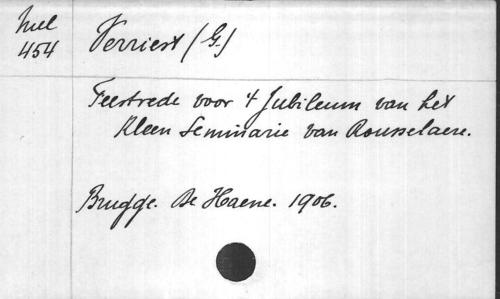 Mel
454
Verriest (G.)
Feestrede voor 't Jubileum van het
Kleen Seminarie van Rousselaere.
Brugge. De Haene. 1906.